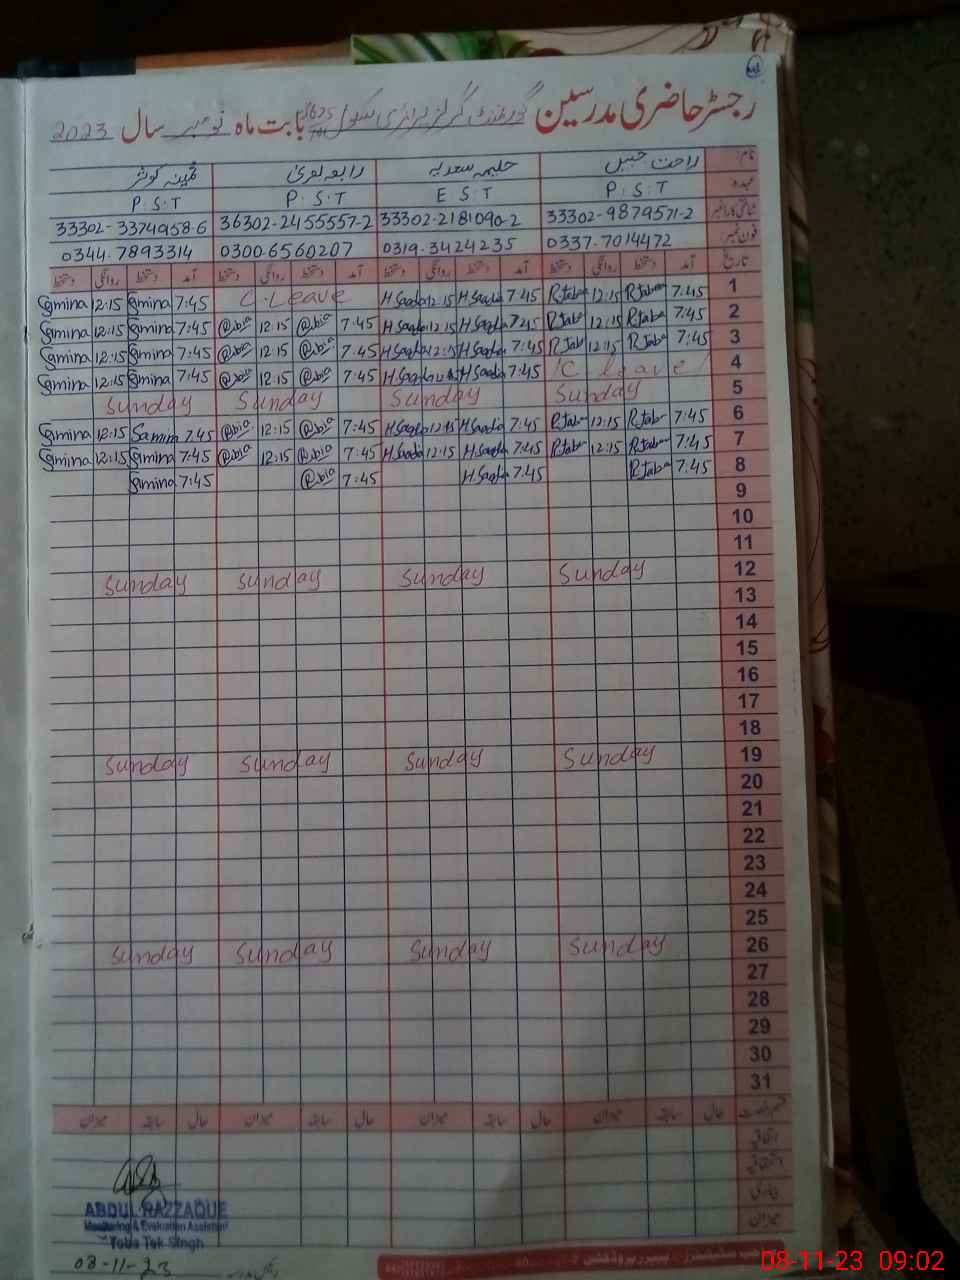 رجسٹر حاضری مدرسین گورنمنٹ گرلز پرائمری سکول 625 بابت ماہ نومبر سال 2023
نام: راحت جبیں حلیمہ سعدیہ رابعہ ثمینہ کوثر
عہدہ P.S.T E.S.T P.S.T P.S.T
شناختی کارڈ نمبر 33302-9879571-2 33302-2181090-2 36302-2455557-2 33302-3374958-6
فون نمبر: 0337-7014472 0319-3424235 0300-6560207 0344-7893314
تاریخ آمد دستخط روانگی دستخط آمد دستخط روانگی دستخط آمد دستخط روانگی دستخط آمد دستخط روانگی دستخط
1 7:45 R.Jaben 12:15 R.Jabn 7:45 H.Saadia 12:15 H.Saadia C.Leave 7:45 Samina 12:15 Samina
2 7:45 R.Jabn 12:15 R.Jabn 7:45 H.Saadia 12:15 H.Saadia 7:45 Rabia 12:15 Rabia 7:45 Samina 12:15 Samina
3 7:45 R.Jabn 12:15 R.Jabn 7:45 H.Saadia 12:15 H.Saadia 7:45 Rabia 12:15 Rabia 7:45 Samina 12:15 Samina
4 C leave 7:45 H.Saadia H.Saadia 7:45 Rabia 12:15 Rabia 7:45 Samina 12:15 Samina
5 Sunday Sunday Sunday Sunday
6 7:45 R.Jabn 12:15 R.Jabn 7:45 H.Saadia 12:15 H.Saadia 7:45 Rabia 12:15 Rabia 7:45 Samina 12:15 Samina
7 7:45 R.Jabn 12:15 R.Jabn 7:45 H.Saadia 12:15 H.Saadia 7:45 Rabia 12:15 Rabia 7:45 Samina 12:15 Samina
8 7:45 R.Jabn 7:45 H.Saadia 7:45 Rabia 7:45 Samina
9
10
11
12 Sunday Sunday Sunday Sunday
13
14
15
16
17
18
19 Sunday Sunday Sunday Sunday
20
21
22
23
24
25
26 Sunday Sunday Sunday Sunday
27
28
29
30
31
حال سابقہ میزان حال سابقہ میزان حال سابقہ میزان حال سابقہ میزان
اتفاقیہ
میزان
ABDUL RAZZAQUE
Monitoring & Evaluation Assistant
Toba Tek Singh
08-11-23
08-11-23 09:02